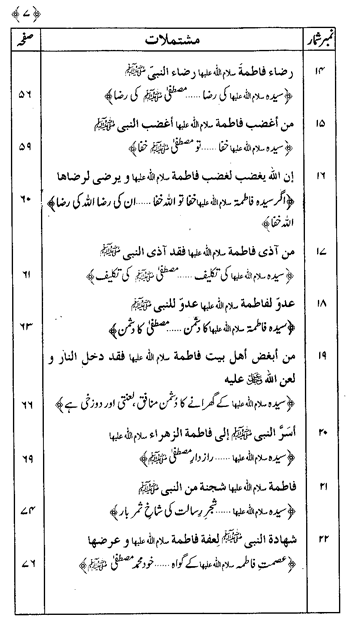 ﴿۷﴾
نمبر شمار مشتملات صفحہ
۱۴ رضاء فاطمة سلام اللہ علیہا رضاء النبیّ ﷺ
﴿سیدہ سلام اللہ علیہا کی رضا ...... مصطفیٰ ﷺ کی رضا﴾ ۵۶
۱۵ من أغضب فاطمة سلام اللہ علیہا أغضب النبی ﷺ
﴿سیدہ سلام اللہ علیہا خفا ...... تو مصطفیٰ ﷺ خفا﴾ ۵۹
۱۶ إن الله یغضب لغضب فاطمة سلام اللہ علیہا و یرضی لرضاها
﴿اگر سیدہ فاطمۃ سلام اللہ علیہا خفا تو اللہ خفا ...... ان کی رضا اللہ کی رضا﴾ ۶۰
اللہ خفا﴾
۱۷ من آذی فاطمة سلام اللہ علیہا فقد آذی النبی ﷺ
﴿سیدہ سلام اللہ علیہا کی تکلیف ...... مصطفیٰ ﷺ کی تکلیف﴾ ۶۱
۱۸ عدوّ لفاطمة سلام اللہ علیہا عدوّ للنبی ﷺ
﴿سیدہ فاطمۃ سلام اللہ علیہا کا دشمن ...... مصطفیٰ کا دشمن﴾ ۶۳
۱۹ من أبغض أهل بیت فاطمة سلام اللہ علیہا فقد دخل النار و
لعن الله ﷻ علیه
﴿سیدہ سلام اللہ علیہا کے گھرانے کا دشمن منافق، لعنتی اور دوزخی ہے﴾ ۶۶
۲۰ أسَرَّ النبی ﷺ إلی فاطمة الزهراء سلام اللہ علیہا
﴿سیدہ سلام اللہ علیہا ...... رازدارِ مصطفیٰ ﷺ﴾ ۶۹
۲۱ فاطمة سلام اللہ علیہا شجنة من النبی ﷺ
﴿سیدہ سلام اللہ علیہا ...... شجرِ رسالت کی شاخِ ثمر بار﴾ ۷۴
۲۲ شهادة النبی ﷺ لعفة فاطمة سلام اللہ علیہا و عرضها
﴿عصمتِ فاطمہ سلام اللہ علیہا کے گواہ ...... خود محمد مصطفیٰ ﷺ﴾ ۷۶